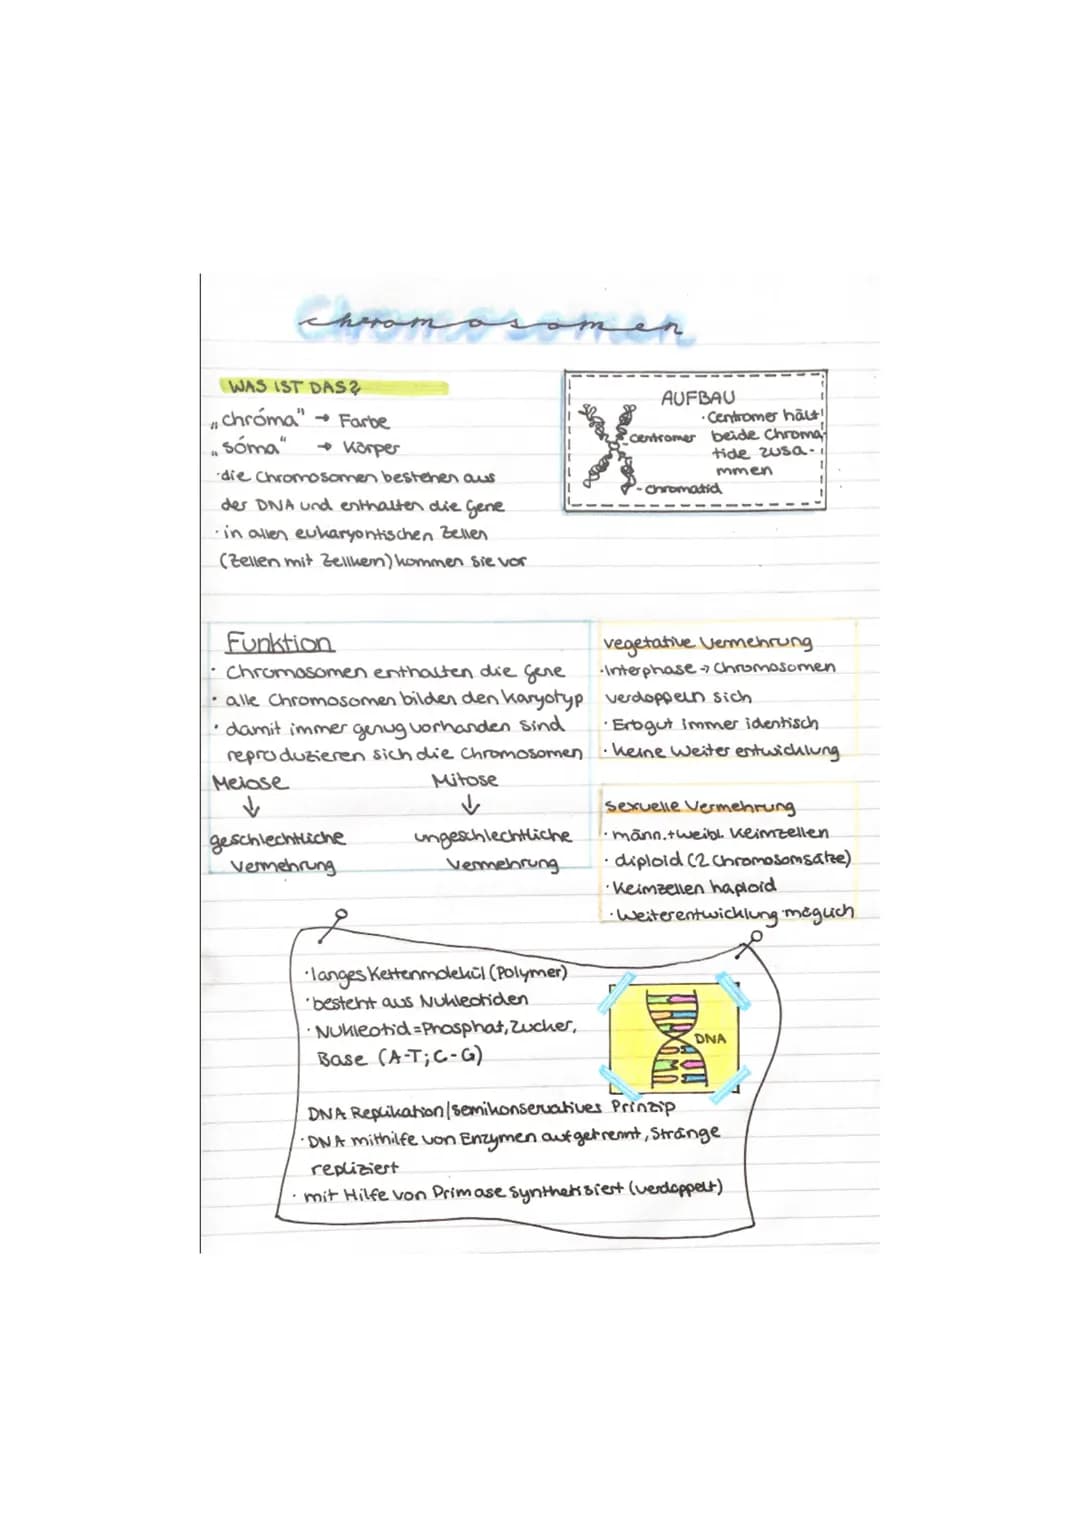 Chromosomen
WAS IST DAS?
„chróma" → Farbe
„sóma" → Körper
·die Chromosomen bestehen aus
der DNA und enthalten die Gene
·in allen eukaryontischen Zellen
(Zellen mit Zellkern) kommen sie vor
AUFBAU
·Centromer hält
beide Chroma-
tide zusa-
mmen
Centromer
-Chromatid
Funktion
· Chromosomen enthalten die Gene
· alle Chromosomen bilden den Karyotyp
· damit immer genug vorhanden sind
reproduzieren sich die Chromosomen
Meiose Mitose
↓ ↓
geschlechtliche ungeschlechtliche
Vermehrung Vermehrung
vegetative Vermehrung
·Interphase → Chromosomen
verdoppeln sich
·Erbgut immer identisch
·keine Weiterentwicklung
sexuelle Vermehrung
·männ.+weibl. Keimzellen
·diploid (2 Chromosomsätze)
·Keimzellen haploid
·Weiterentwicklung möglich
·langes Kettenmolekül (Polymer)
·besteht aus Nukleotiden
·Nukleotid=Phosphat, Zucker,
Base (A-T; C-G)
DNA
DNA Replikation/semikonservatives Prinzip
·DNA mithilfe von Enzymen aufgetrennt, Stränge
repliziert
· mit Hilfe von Primase synthetisiert (verdoppelt)